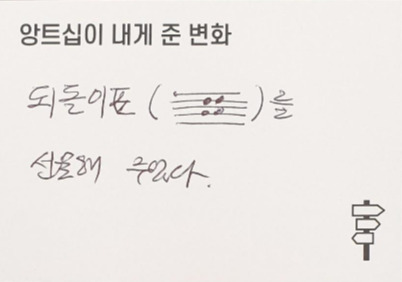 앙트십이 내게 준 변화
되돌이표 ( )를
선물해 주었다.